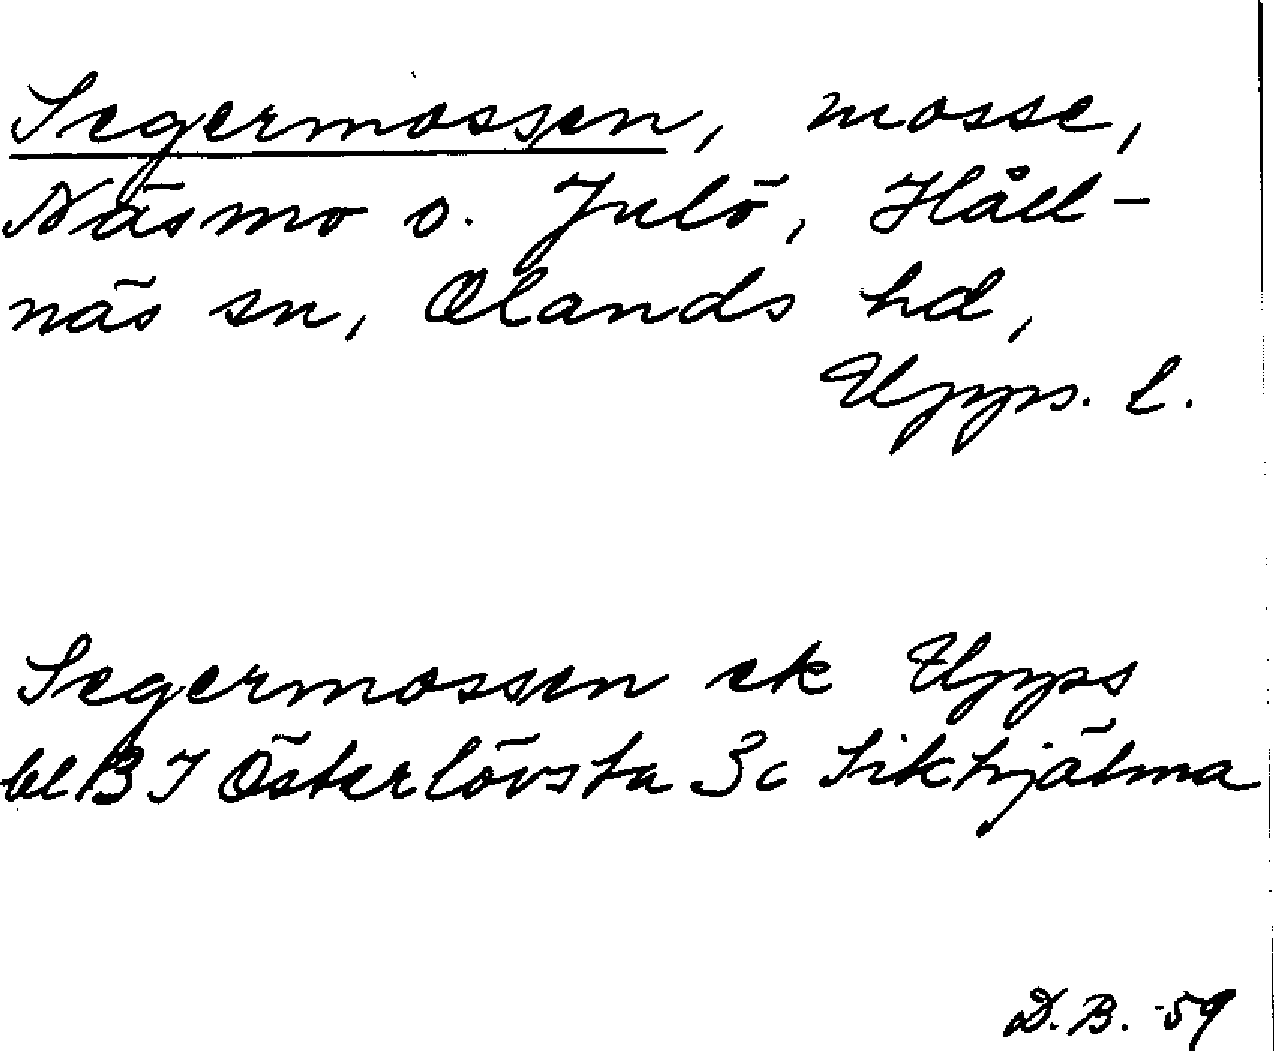 Segermossen, mosse,
Näsmo o. Julö, Håll-
näs sn, Olands hd,
Upps. l.
Segermossen ek Upps
bl B I Österlövsta 3c Sikhjälma
D.B. -59